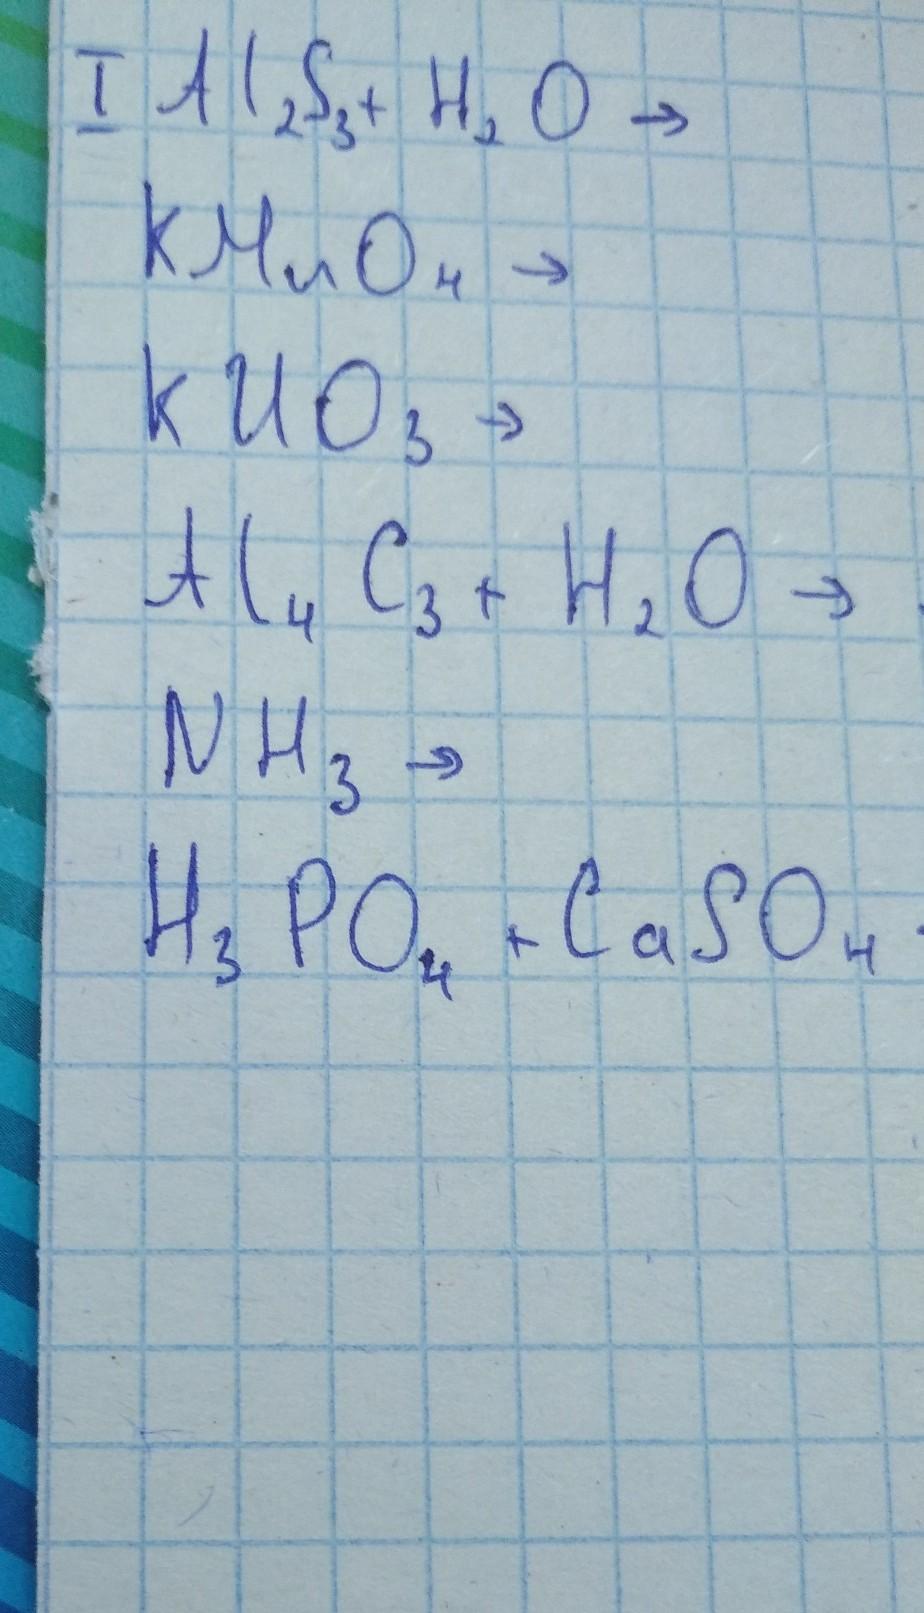 I Al₂S₃ + H₂O →
KMnO₄ →
KNO₃ →
Al₄C₃ + H₂O →
NH₃ →
H₃PO₄ + CaSO₄